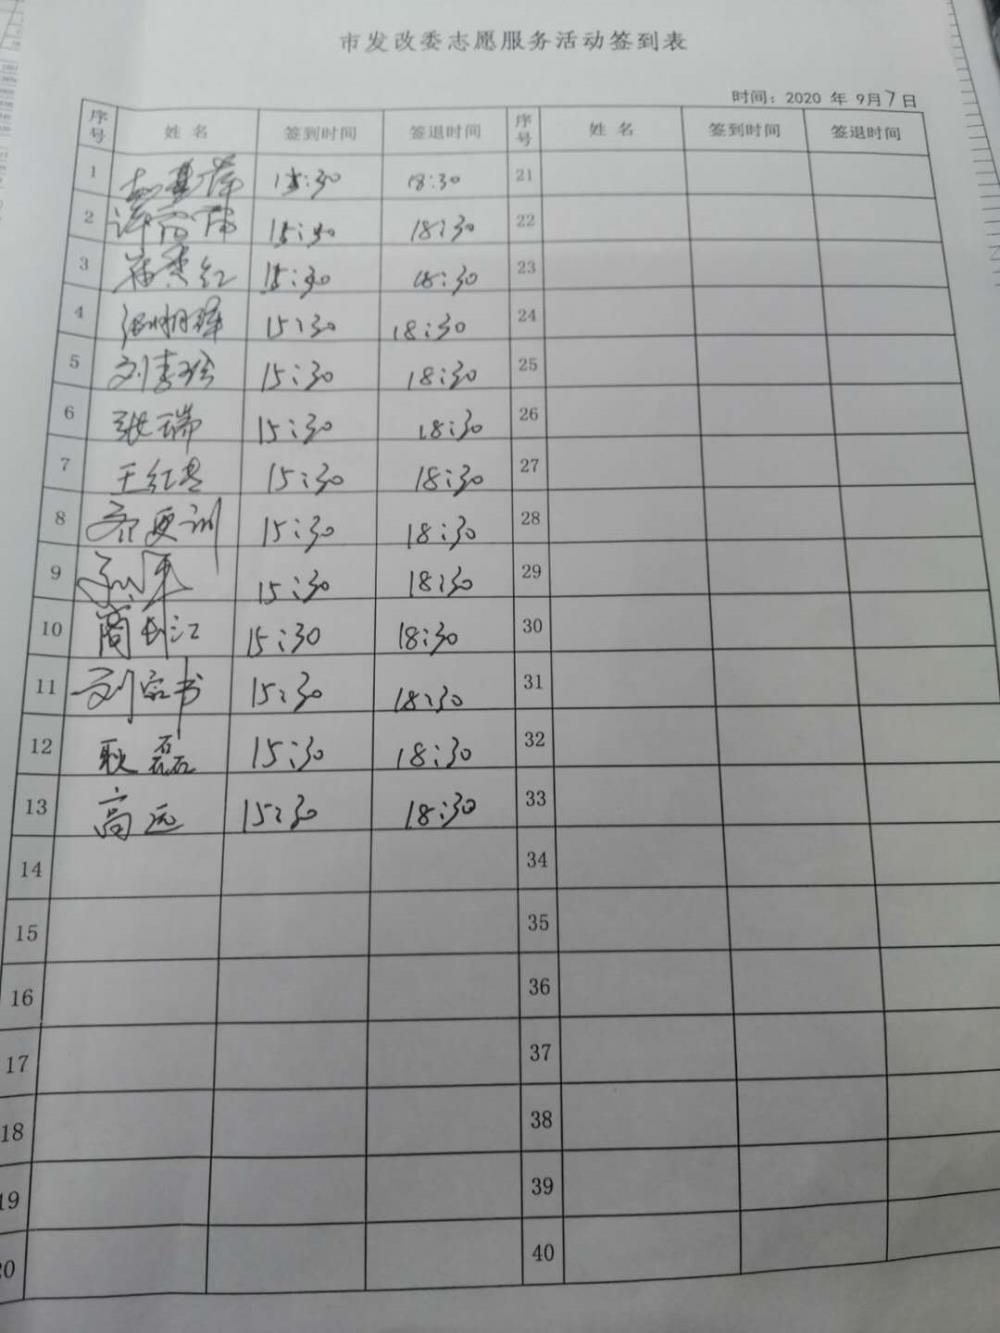 市发改委志愿服务活动签到表
时间：2020 年 9月7日
序号 姓 名 签到时间 签退时间 序号 姓 名 签到时间 签退时间
1 15:30 18:30 21
2 15:30 18:30 22
3 15:30 18:30 23
4 15:30 18:30 24
5 15:30 18:30 25
6 张瑞 15:30 18:30 26
7 王红 15:30 18:30 27
8 15:30 18:30 28
9 15:30 18:30 29
10 商长江 15:30 18:30 30
11 刘 书 15:30 18:30 31
12 耿磊 15:30 18:30 32
13 高远 15:30 18:30 33
14 34
15 35
16 36
17 37
18 38
19 39
20 40